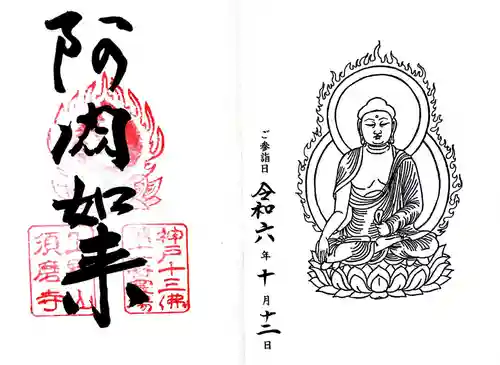 阿閦如来
神戸十三佛
須磨寺
ご参詣日 令和六年十月十二日